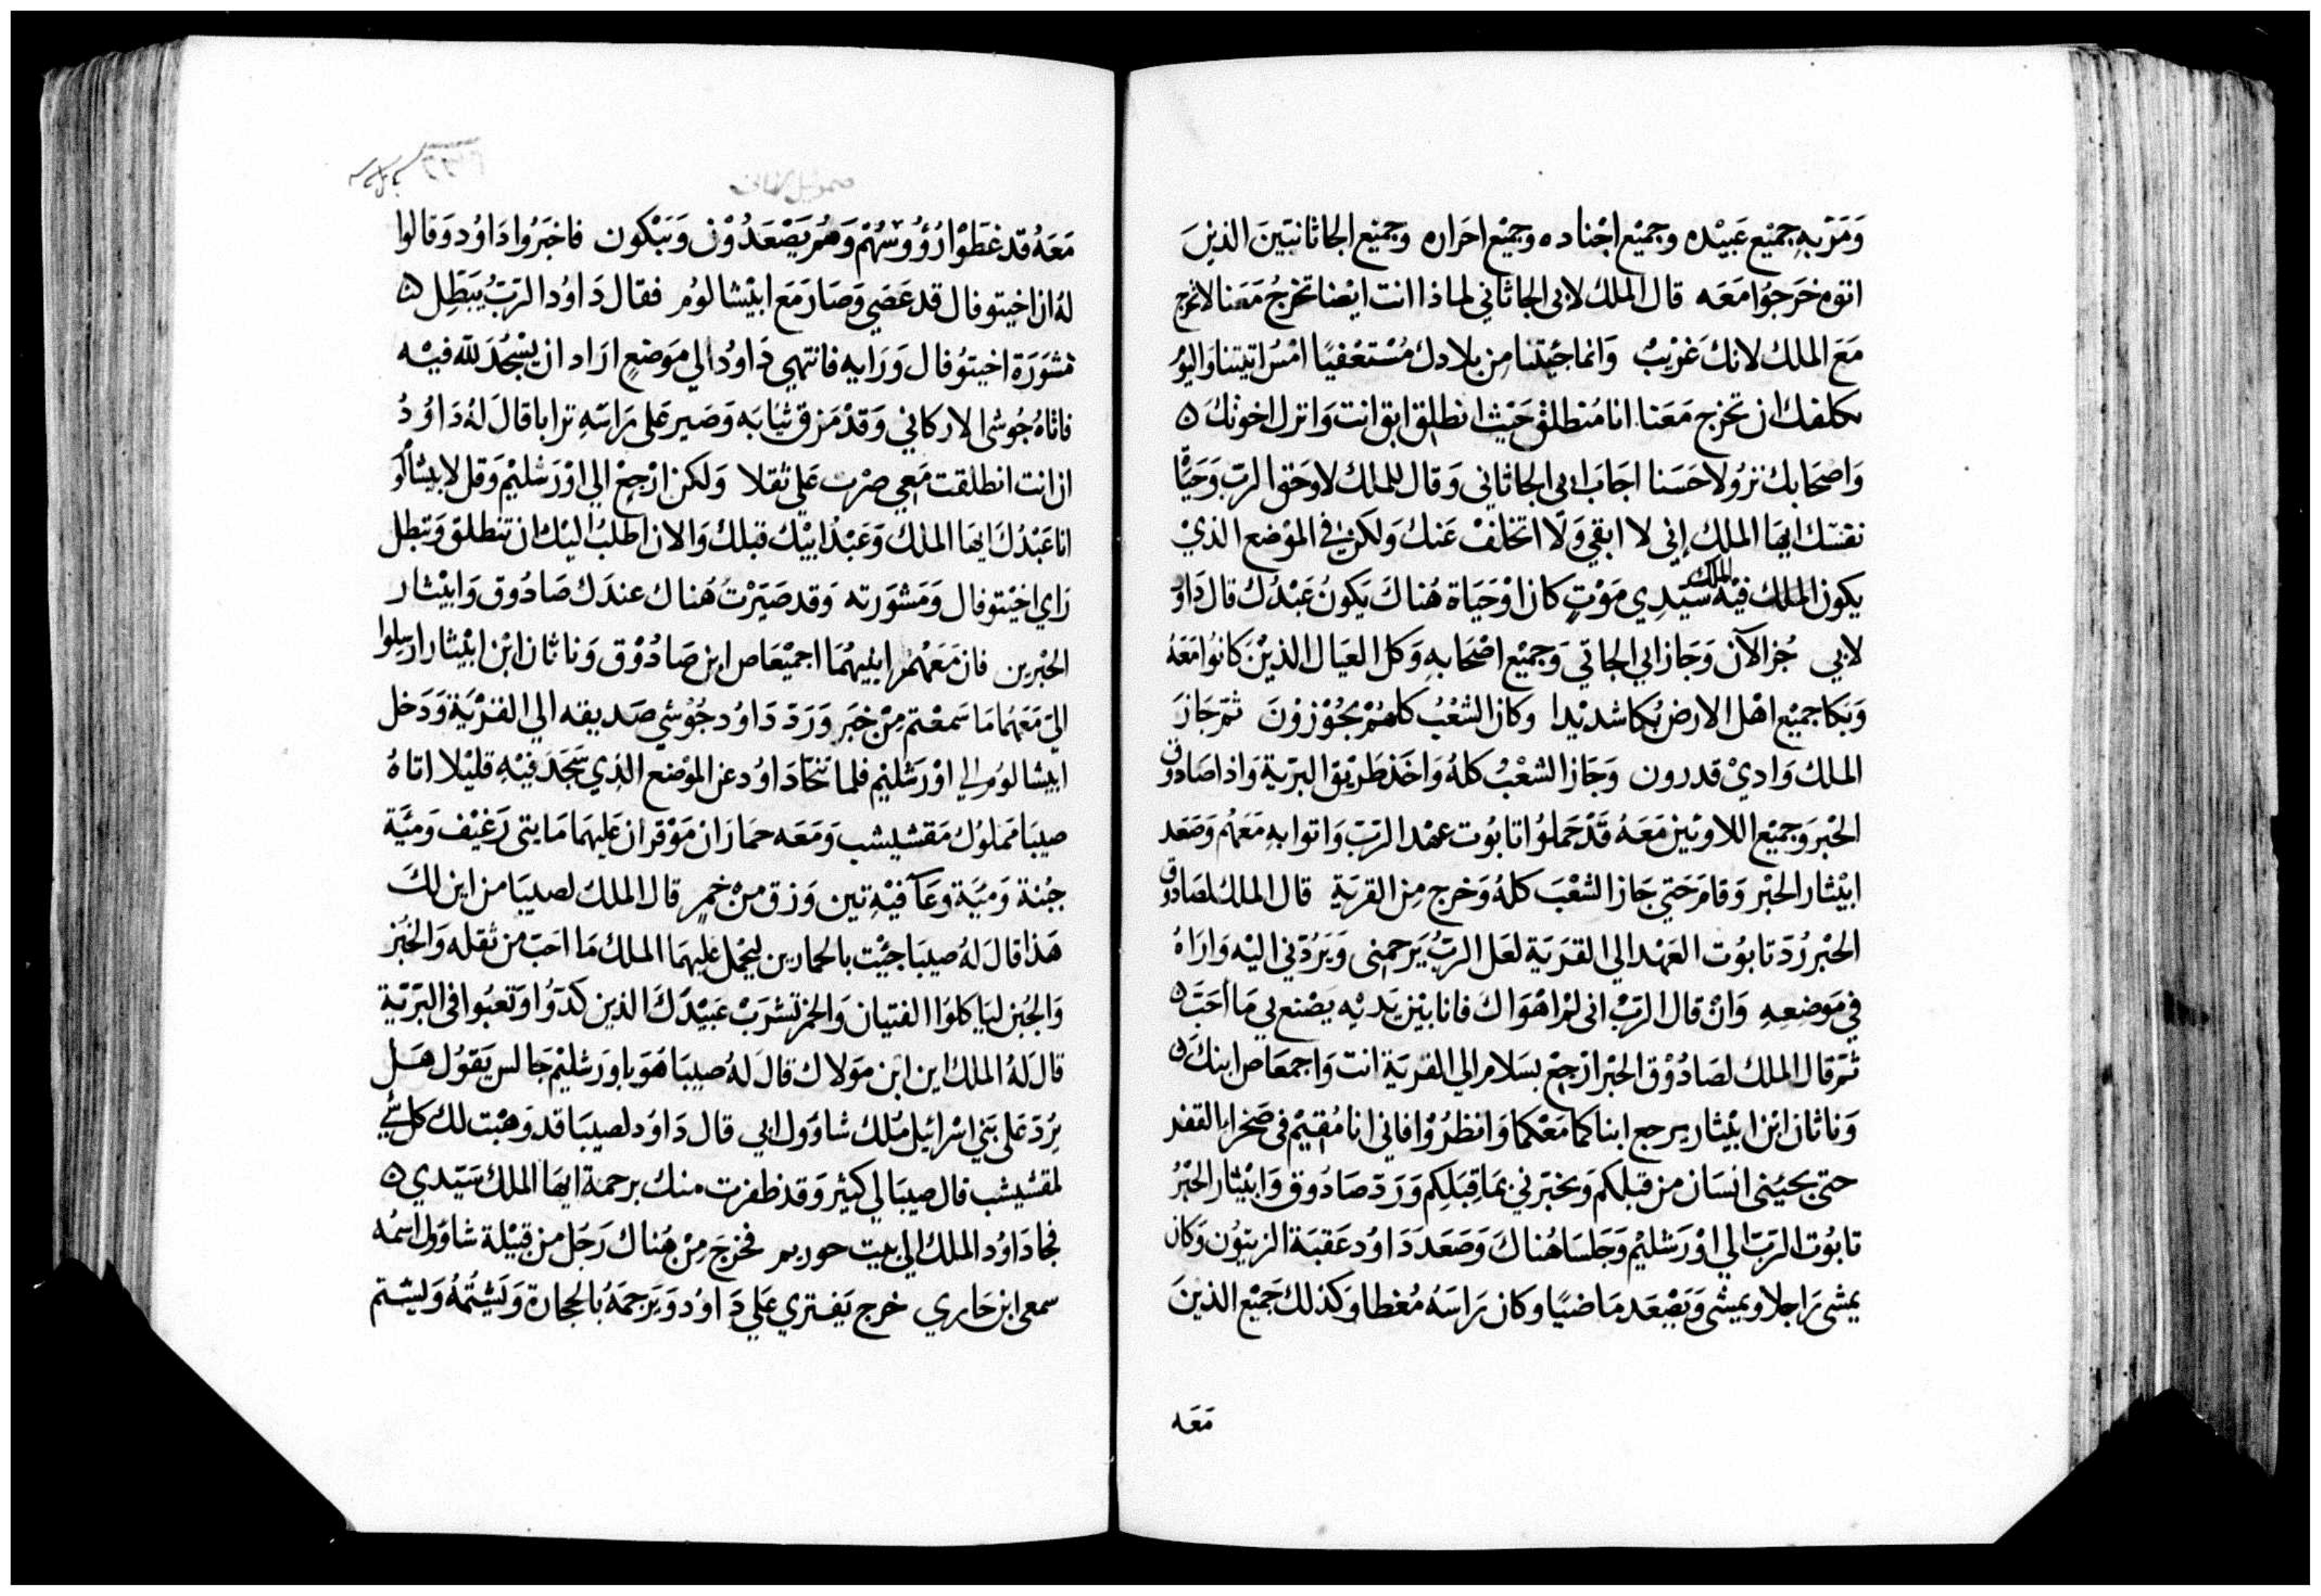 وَمَرّ بهِ جميْع عَبيْده وجميْع اجْناده وجميْع احَراره وجميْع الجاثانيّينَ الذينَ
اتوه خرَجوُا معَه قال الملك لابي الجاثاني لماذا انت ايْضا تخرجُ مَعَنا لا تخرج
مَعَ الملك لانكَ غريْبْ وَانما جئتنا مِن بلادك مُسْتعْفيًا امْسِ اتيتنا وَاليوُم
نكلفك ان تخرج مَعَنا انا مُنطلق حَيْث انطلق ابق انت وَانزل اخوتكَ ۞
وَاصْحَابك نزوُلا حَسَنا اجَاب ابي الجاثاني وَقال للملك لا وَحَق الربّ وَحَيَاة
نفسَك ايهَا الملك اِني لا ابقي وَلا اتخلفْ عَنك وَلكنْ في الموْضع الذيْ
يكون الملك فيْه سَيّدِي الملك مَوْتٍ كان اوْ حَيَاة هُناكَ يَكونُ عَبْدُك قال داوُد
لابي جُز الآن وَجَاز ابي الجاتي وَجميْع اصْحَابهِ وَكل العيَال الذيْنَ كانوُا مَعَهُ
وَبَكا جميْع اهْل الارض بُكا شديْدا وكان الشعْبُ كلهُمْ يجُوْزوْنَ ثمّ جَازَ
الملك وَاديْ قدرون وَجَاز الشعْبُ كلهُ وَاخذ طَريْق البرّية وَاذا صَادوق
الحْبر وَجميْع اللاويْين مَعَهُ قَدْ حَملوُا تابوُت عهْد الربّ وَاتوا بهِ مَعَهُم وَصَعَد
ابيْثار الحْبر وَقامَ حَتي جَاز الشعْبَ كلهُ وَخرج مِن القريَةِ قال الملك لصَادوق
الحْبر رُدّ تابوُت العَهْد الي القريَة لعَل الربُّ يَرحمني وَيَرُدّني اليْه وَارَاهُ
في مَوضِعِهِ وَانْ قال الربّ اني لمْ اهْوَاك فانا بيْن يَديْه يَصْنع بي مَا احَبّ ۞
ثمّ قال الملك لصَادُوْق الحْبر ارْجِعْ بسَلام الي القريَة انت وَاجمعَاص ابنكَ ۞
وَناثان ابْن ابيْثار يرجع ابناكما مَعْكما وَانظرُوْا فاني انا مُقيْم في صَحْراء القفر
حتى يجيُني انسَان من قبَلكم وَيخبَرني بمَا قِبَلِكم وَرَدّ صَادُوق وَابيْثار الحْبْرُ
تابوُت الربّ الي اوْرَشليْم وَجَلسَا هُناكَ وَصَعَدَ دَاوُد عَقبَة الزيتوُن وَكان
يمشي رَاجلا ويمشي وَيَصْعَد مَاضيًا وكان رَاسَهُ مُغطا وَكذلك جَميْع الذينَ
مَعَه
مَعَهُ قد غطَوْا رُؤُوسُهُمْ وَهُم يَصْعَدُوْن وَيَبْكون فاخبَرُوا دَاوُد وَقالوا
لهُ ان اخيتوفال قد عَصَي وَصَارَ مَعَ ابيْشالوُم فقال دَاوُد الربّ يُبَطِل ۞
مَشوَرَة اخيتوُفال وَرَايه فانتهي دَاوُد الي مَوضع ارَاد ان يَسْجُدَ لله فيْه
فاتاهُ جُوشي الاركاني وَقدْ مَزق ثيَابَه وَصَير عَلي رَاسَهِ ترابا قالَ لهُ دَاوُدُ
ان انت انطلقت مَعي صرْت عَلي ثقلا وَلكن ارْجِعْ الي اوْرَشليْم وَقل لابيْشالوُم
انا عَبْدُكَ ايهَا الملك وَعَبْدُ ابيْك قبلك وَالان اطلبُ اليْك ان تنطلق وَتبْطل
رَاي اخيتوفال وَمَشوَرته وَقد صَيّرْتُ هُناك عندَك صَادُوق وَابيْثار
الحْبرين فان مَعَهُمْ ابنيهُمَا اجميْعَاص ابن صَادُوْق وَناثان ابْن ابيْثار ارسِلوا
اليّ مَعَهُما مَا سَمعْتم مِنْ خبَر وَرَدّ دَاوُد جُوْشي صَديقه الي القرْيَة وَدَخل
ابيشالوُم الي اوْرَشليْم فلما تنحّا دَاوُد عن الموْضع الذِي سَجَدَ فيْهِ قليْلا اتاهُ
صيبَا مَملوُك مَقشيشب وَمَعَه حمَاران مَوْقران عَليهمَا مَايتي رَغيْف وَميَّة
جُبنة وَميَّة وعَآ فيْهِ تين وَزق منْ خمر قال الملك لصيبَا من اين لكَ
هَذا قالَ لهُ صيبَا جيْت بالحمارين ليَحْمل عَليهمَا الملك مَا احَبّ من ثقله وَالخُبز
وَالجُبن ليَاكلوُا الفتيان وَالخمر تشرَبْ عَبيْدكَ الذين كدّوُا وَتعبوُا في البَرّيّة
قال لهُ الملك اين ابن مَولاك قالَ لهُ صيبَا هَوَ باورَشليْم جَالس يَقوُل هَل
يرُدّ عَلي بَني اسْرائيل مُلك شاوُول ابي قال دَاوُد لصيبَا قد وَهبْت لك كل شَيْ
لمقشيشب قال صيبَا لي كثير وَقد ظفرت منك برحمة ايهَا الملك سَيّدي ۞
فجا دَاوُد الملك الي بيت حوريم فخرَجَ مِنْ هُناك رَجُل من قبيْلة شاوُول اسْمُه
سمعي ابن حَاري خرج يَفتري عَلي دَاوُد وَيَرجمَهُ بالحجارة وَيَشتُمُهُ وَيشتم